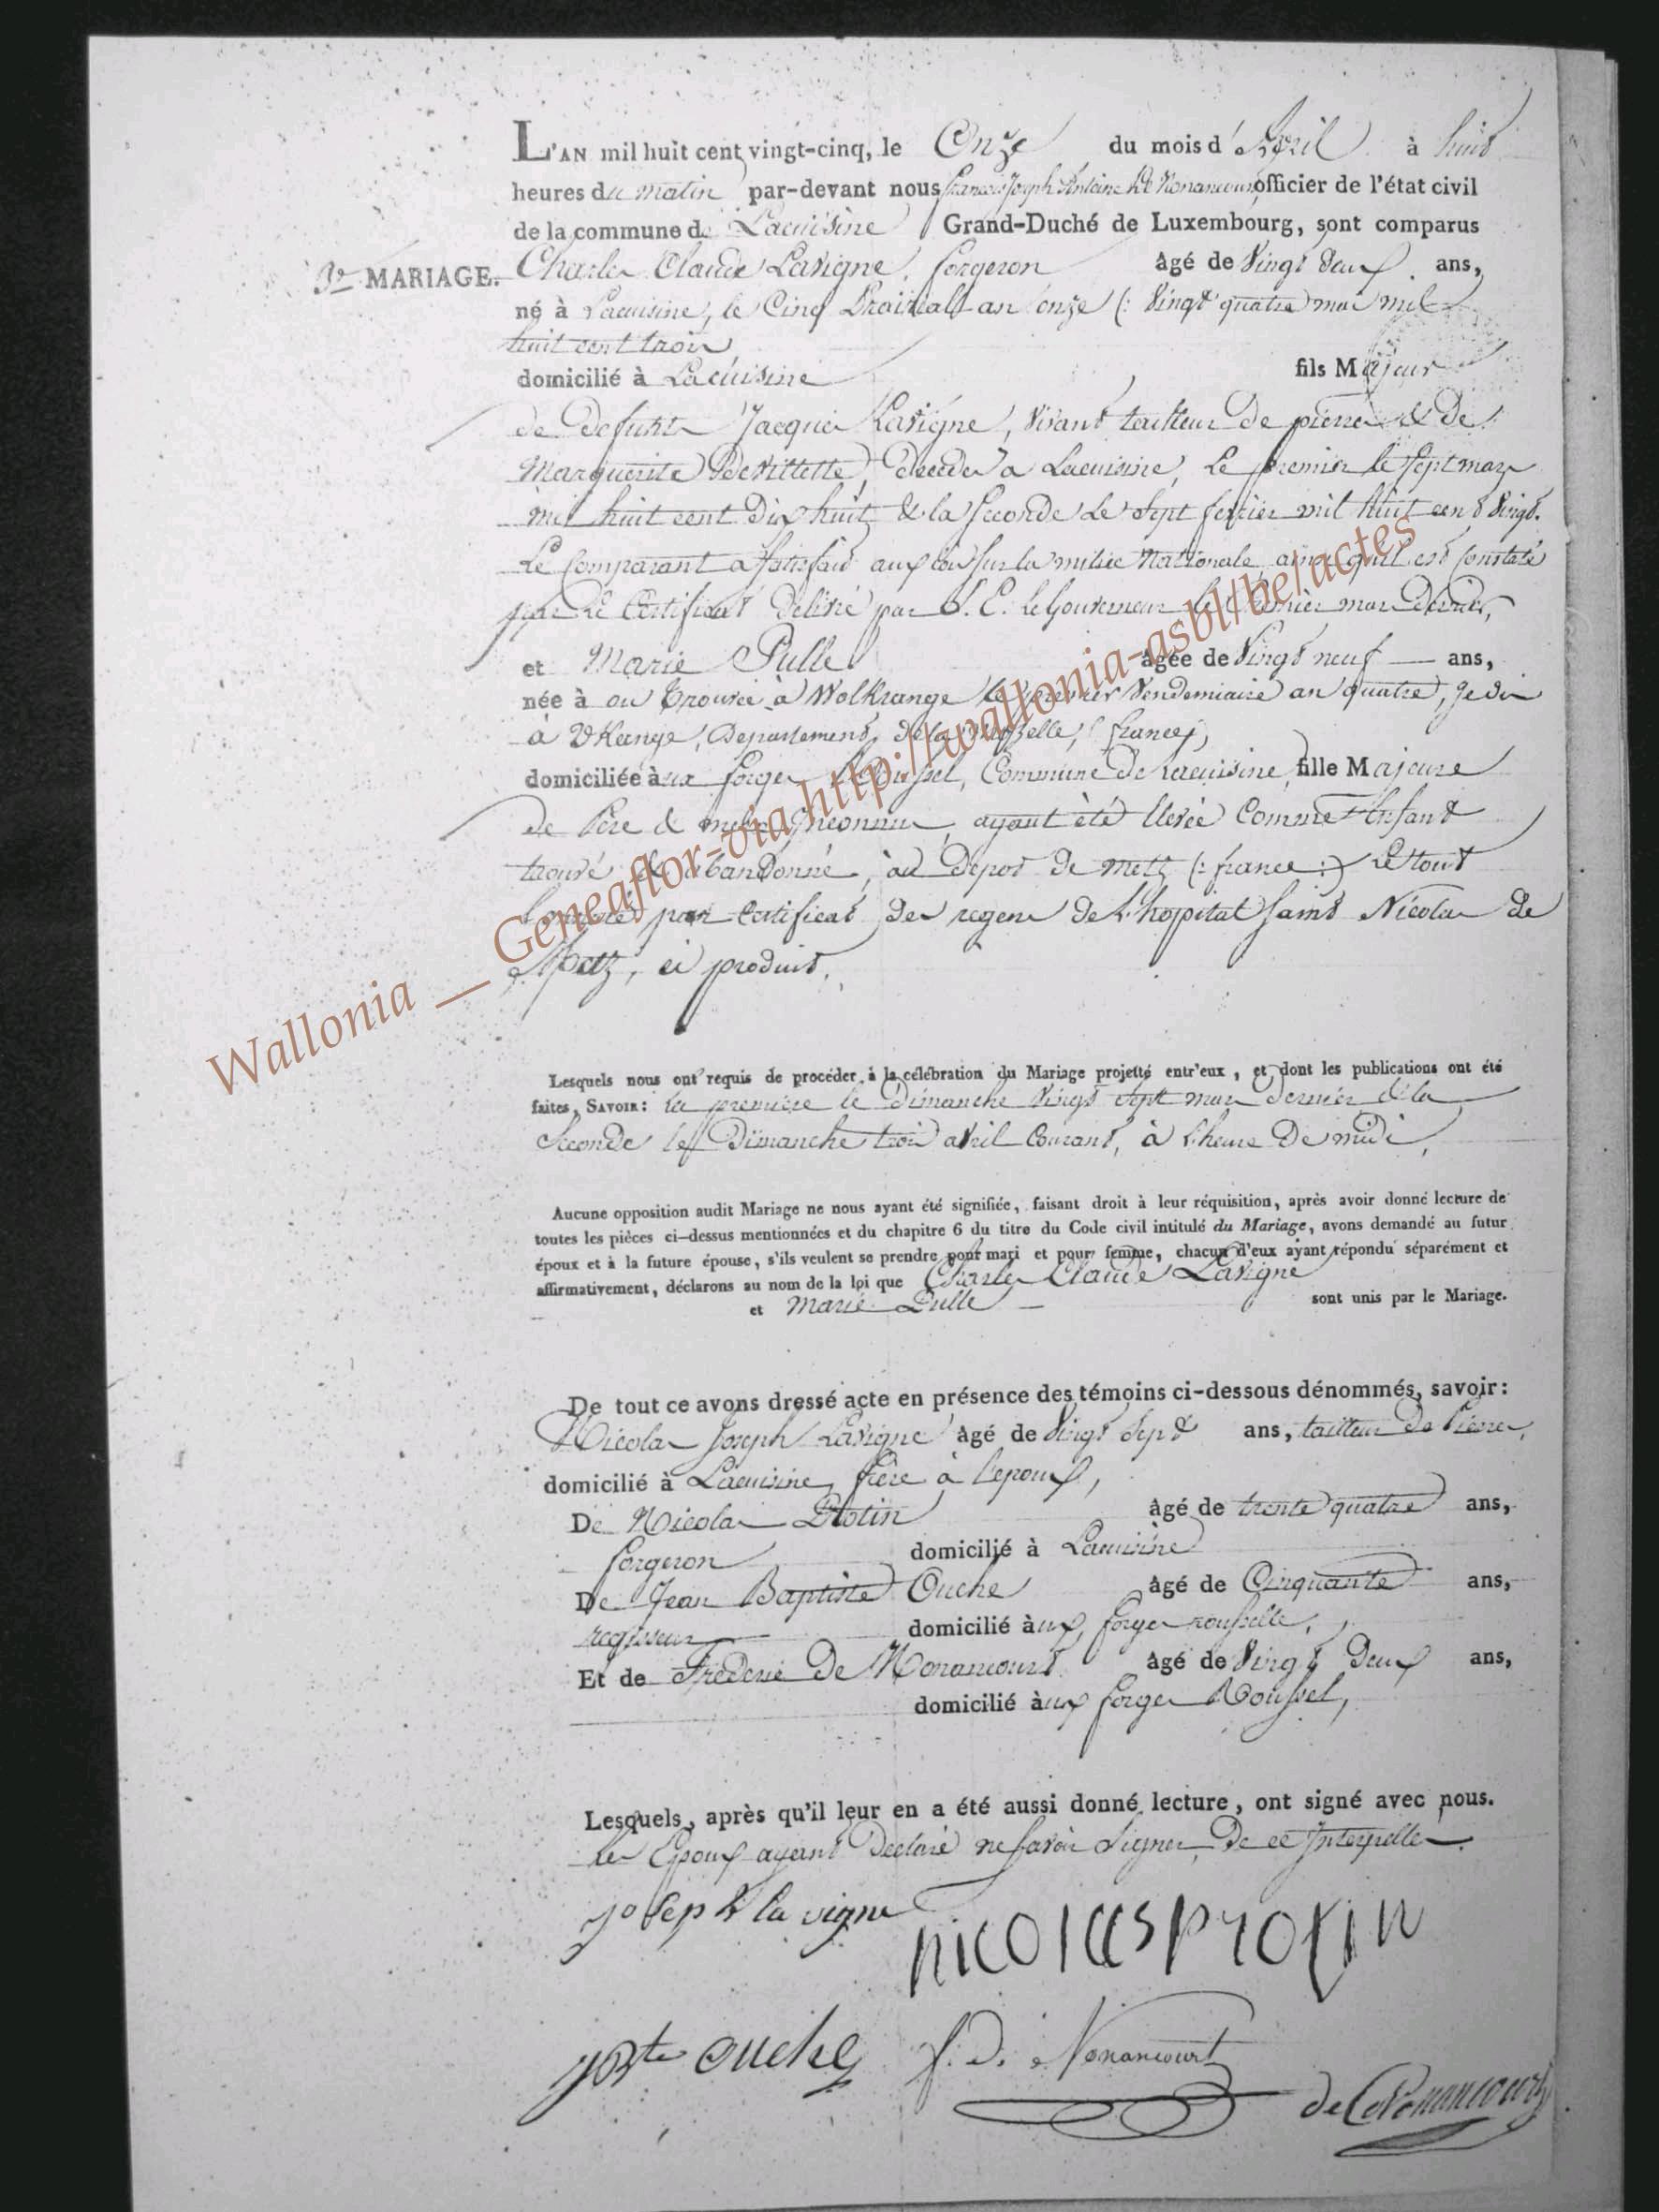 L'AN mil huit cent vingt-cinq, le Onze du mois d'Avril à huit
heures du matin par-devant nous francois Joseph Antoine De Nonancourt officier de l'état civil
de la commune de Lacuisine Grand-Duché de Luxembourg, sont comparus
3e MARIAGE. Charles Claude Lavigne, forgeron âgé de Vingt deux ans,
né à Lacuisine, le Cinq Prairial an onze (: Vingt quatre mai mil
huit cent trois
domicilié à Lacuisine fils Majeur
de defunts Jacques Lavigne, vivant tailleur de pierre & De
Marguerite Devillette, decedés a Lacuisine, Le premier le sept mars
mil huit cent Dix huit & la Seconde Le Sept fevrier mil huit cent Vingt.
Le Comparant a satisfait aux lois sur la milice Nationale ainsi qu'il est Constaté
par Le Certificat Delivré par S. E. le Gouverneur le mars Dernier,
et Marie Pulle agée de Vingt neuf ans,
née à ou trouvée à Wolkrange le premier Vendemiaire an quatre, Je dis
à Departement de la Moselle, (france)
domiciliée aux forges Roussel, Commune De Lacuisine fille Majeure
De Père & mère Inconnus, ayant été Elevée Comme Enfant
trouvé & abandonné, au Depot De Metz (: france :) Le tout
par Certificat des regens de L'hopital Saint Nicolas de
Metz, ci produit.
Lesquels nous ont requis de procéder à la célébration du Mariage projetté entr'eux, et dont les publications ont été
faites, SAVOIR: La premiere le Dimanche Vingt sept mars dernier & la
Seconde le Dimanche trois avril Courant, à L'heure De midi,
Aucune opposition audit Mariage ne nous ayant été signifiée, faisant droit à leur réquisition, après avoir donné lecture de
toutes les pièces ci-dessus mentionnées et du chapitre 6 du titre du Code civil intitulé du Mariage, avons demandé au futur
époux et à la future épouse, s'ils veulent se prendre pour mari et pour femme, chacun d'eux ayant répondu séparément et
affirmativement, déclarons au nom de la loi que Charles Claude Lavigne
et Marie Pulle sont unis par le Mariage.
De tout ce avons dressé acte en présence des témoins ci-dessous dénommés, savoir:
Nicolas Joseph Lavigne âgé de Vingt Sept ans, tailleur De Pierre,
domicilié à Lacuisine, frère à l'epoux,
De Nicolas Protin âgé de trente quatre ans,
forgeron domicilié à Lacuisine
De Jean Baptiste Ouche âgé de Cinquante ans,
regisseur domicilié aux forges rousselle,
Et de Frederic De Nonancourt âgé de Vingt Deux ans,
domicilié aux forges Roussel,
Lesquels, après qu'il leur en a été aussi donné lecture, ont signé avec nous.
les Epoux ayant Declaré ne savoir Signer, De ce Interpellés.
joseph la vigne
nicolas protin
jbte ouche f. D. Nonancourt
de Nonancourt
Wallonia __ Geneaflor-via http://wallonia-asbl/be/actes